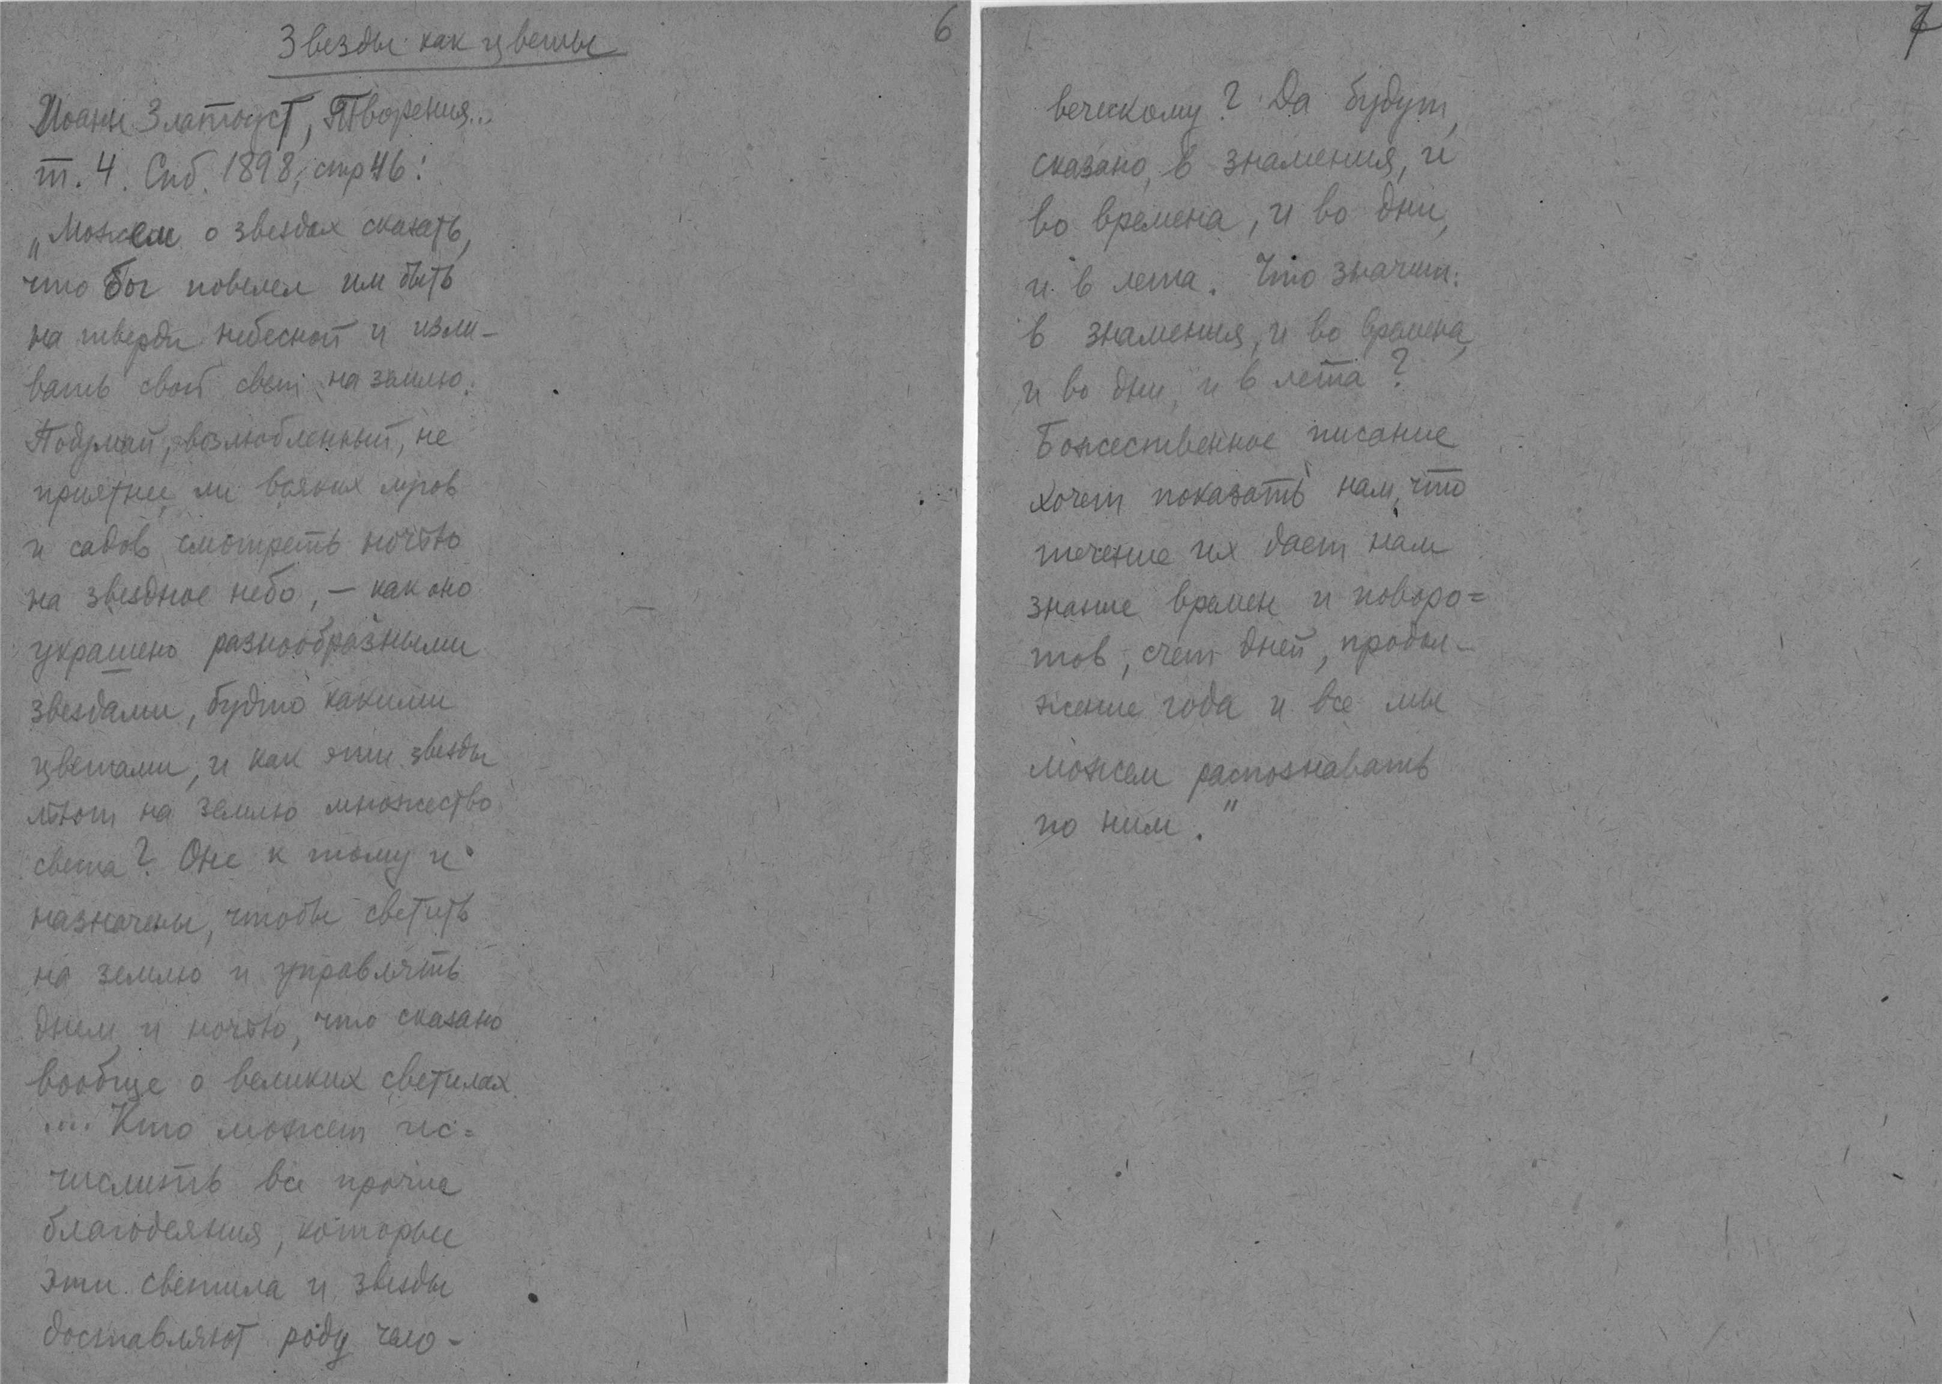 6
Звезды как цветы
Иоанн Златоуст, Творения...
т. 4. Спб. 1898, стр 46:
„Можем о звездах сказать,
что Бог повелел им быть
на тверди небесной и изли-
вать свой свет на землю.
Подумай, возлюбленный, не
приятнее ли всяких лугов
и садов смотреть ночью
на звездное небо, – как оно
украшено разнообразными
звездами, будто какими
цветами, и как эти звезды
льют на землю множество
света? Оне к тому и
назначены, чтобы светить
на землю и управлять
днем и ночью, что сказано
вообще о великих светилах
.... Кто может ис=
числить все прочие
благодеяния, которые
эти светила и звезды
доставляют роду чело-
7
веческому? Да будут,
сказано, в знамения, и
во времена, и во дни,
и в лета. Что значит:
в знамения, и во времена,
и во дни, и в лета?
Божественное писание
хочет показать нам, что
течение их дает нам
знание времен и поворо=
тов, счет дней, продол-
жение года и все мы
можем распознавать
по ним."